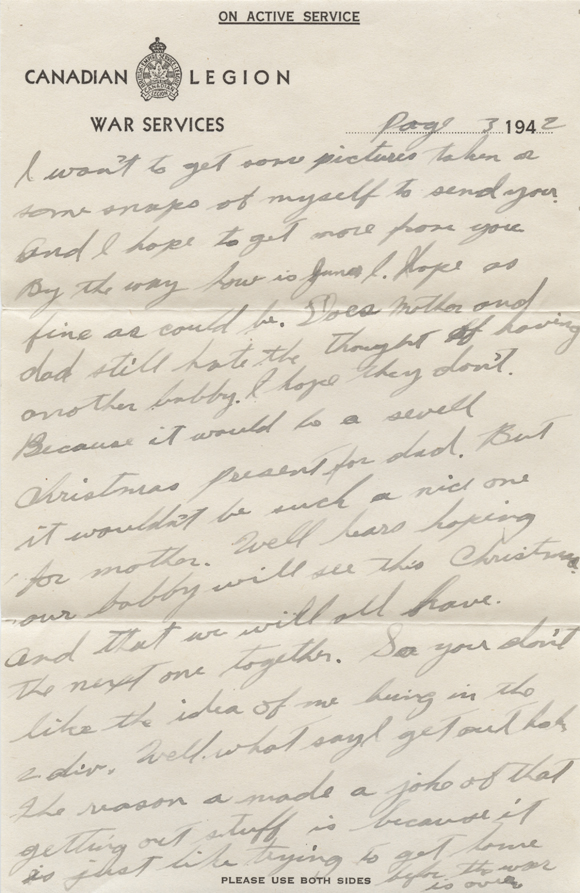 ON ACTIVE SERVICE
CANADIAN LEGION
WAR SERVICES
Page 3 1942
I wan't to get some pictures taken or
some snaps of myself to send you.
And I hope to get more from you
By the way how is June &. Hope as
fine as could be. Does Mother and
dad still hate the thought of having
another babby. I hope they don't.
Because it would be a sewell
Christmas present for dad. But
it wouldn't be such a nice one
for mother. Well hears hoping
our babby will see this Christmas.
And that we will all have.
the next one together. So your don't
like the idea of me being in the
2 div. Well. what say I get out hah
The reason a made a joke of that
getting out stuff is because it
is just like trying to get home
before the war
is over
PLEASE USE BOTH SIDES